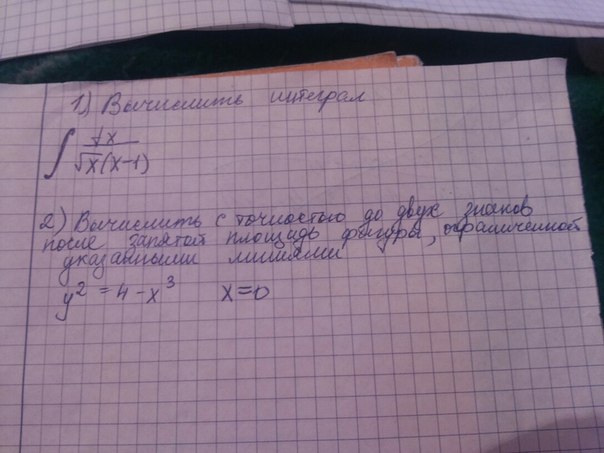 1) Вычислить интеграл
∫ dx / √x(x-1)
2) Вычислить с точностью до двух знаков
после запятой площадь фигуры, ограниченной
указанными линиями
y² = 4 - x³ x=0